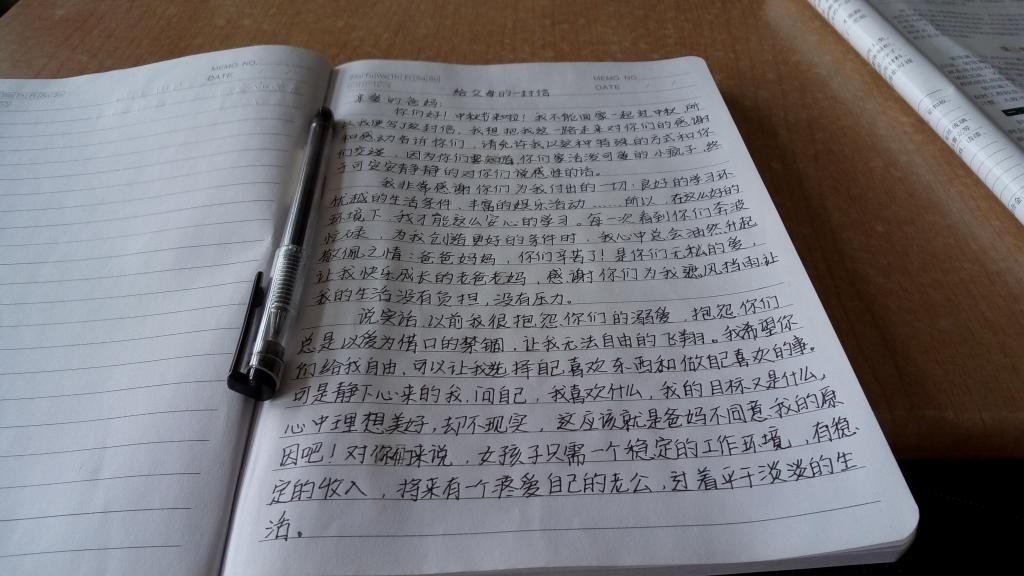 MEMO NO.
DATE
Mo Tu We Th Fr Sa Su
MEMO NO.
DATE
给父母的一封信
亲爱的爸妈:
你们好!中秋节来啦!我不能回家一起过中秋,所
以我便写了这封信。我想把我这一路走来对你们的感谢
和感动告诉你们,请允许我以这种特殊的方式和你
们交谈,因为你们要知道你们家活泼可爱的小疯子,终
于可安安静静的对你们说感性的话。
我非常感谢你们为我付出的一切:良好的学习环
优越的生活条件、丰富的娱乐活动……所以,在这么好的
环境下,我才能这么安心的学习。每一次看到你们奔波
忙碌,为我创造更好的条件时,我心中总会油然升起
敬佩之情:爸爸妈妈,你们辛苦了!是你们无私的爱,
让我快乐成长的老爸老妈,感谢你们为我遮风挡雨让
我的生活没有负担,没有压力。
说实话,以前我很抱怨你们的溺爱,抱怨你们
总是以爱为借口的禁锢,让我无法自由的飞翔。我希望你
们给我自由,可以让我选择自己喜欢东西和做自己喜欢的事。
可是静下心来的我,问自己,我喜欢什么,我的目标又是什么,
心中理想美好,却不现实,这应该就是爸妈不同意我的原
因吧!对你们来说,女孩子只需一个稳定的工作环境,有稳
定的收入,将来有一个疼爱自己的老公,过着平平淡淡的生
活。